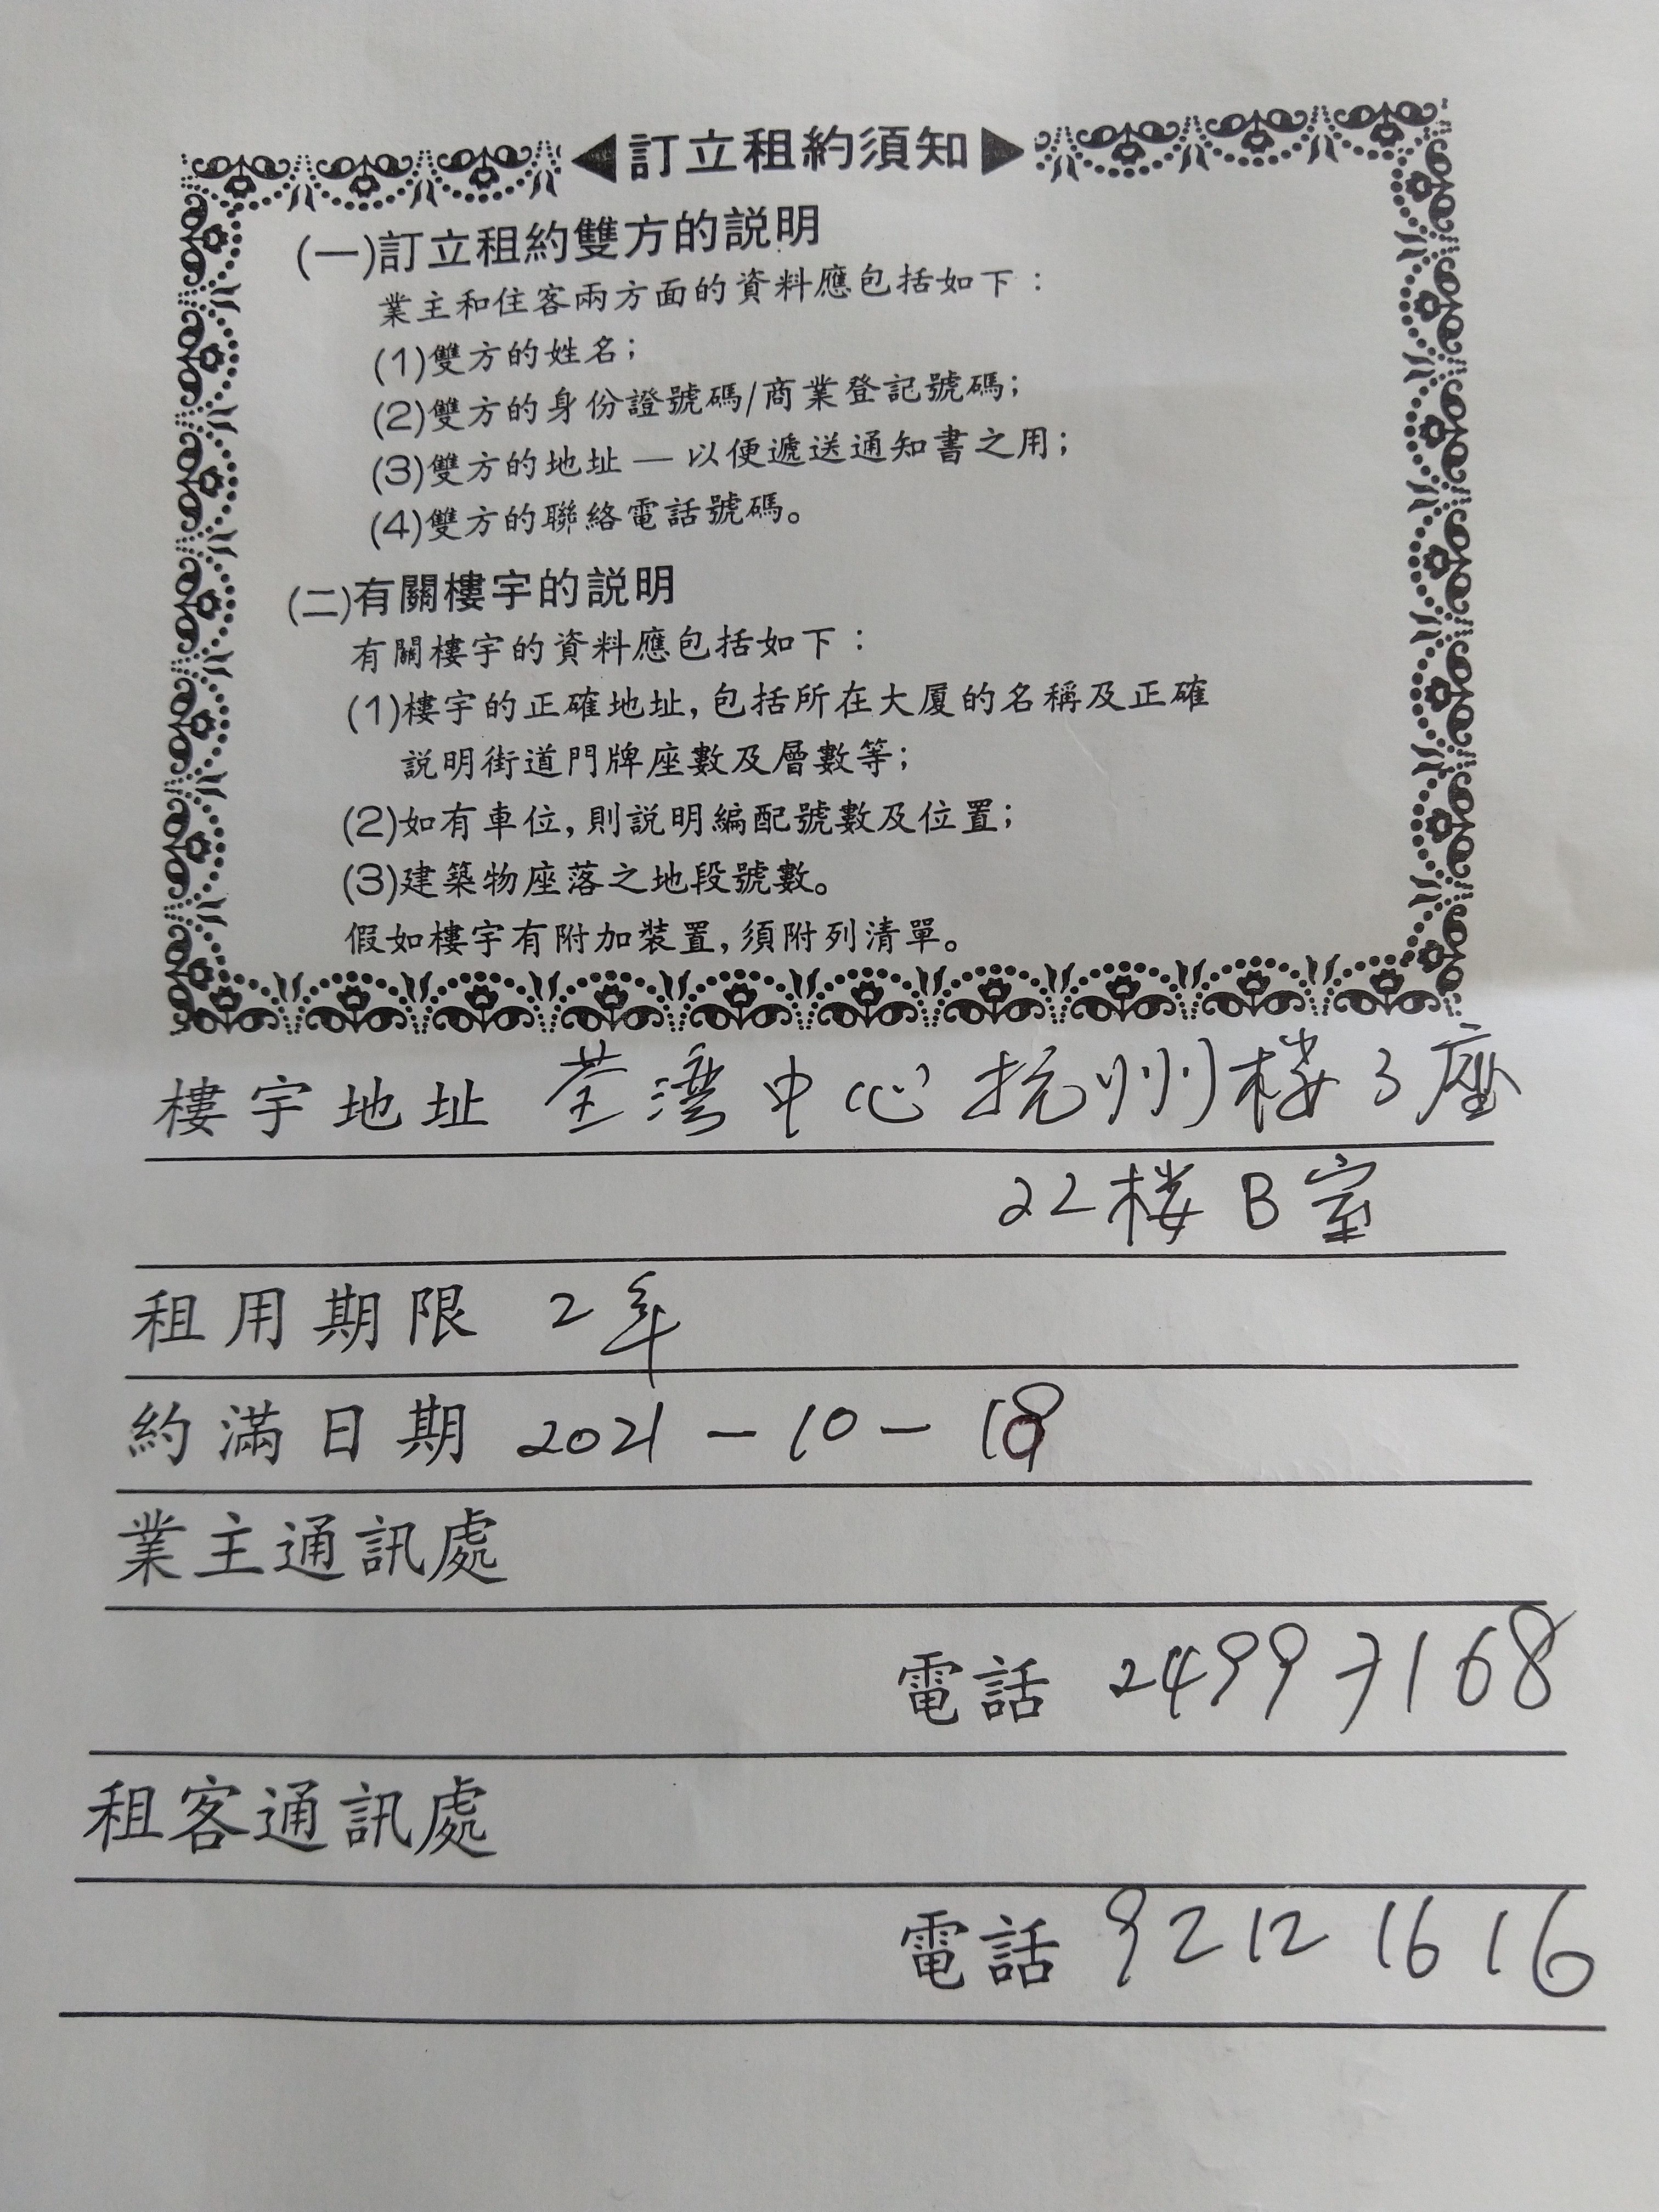 ◀訂立租約須知▶
(一)訂立租約雙方的説明
業主和住客兩方面的資料應包括如下：
(1)雙方的姓名；
(2)雙方的身份證號碼/商業登記號碼；
(3)雙方的地址 — 以便遞送通知書之用；
(4)雙方的聯絡電話號碼。
(二)有關樓宇的説明
有關樓宇的資料應包括如下：
(1)樓宇的正確地址，包括所在大廈的名稱及正確
説明街道門牌座數及層數等；
(2)如有車位，則説明編配號數及位置；
(3)建築物座落之地段號數。
假如樓宇有附加裝置，須附列清單。
樓宇地址 荃灣中心杭州楼3座
22楼B室
租用期限 2年
約滿日期 2021-10-
業主通訊處
電話 24997168
租客通訊處
電話 9212 1616